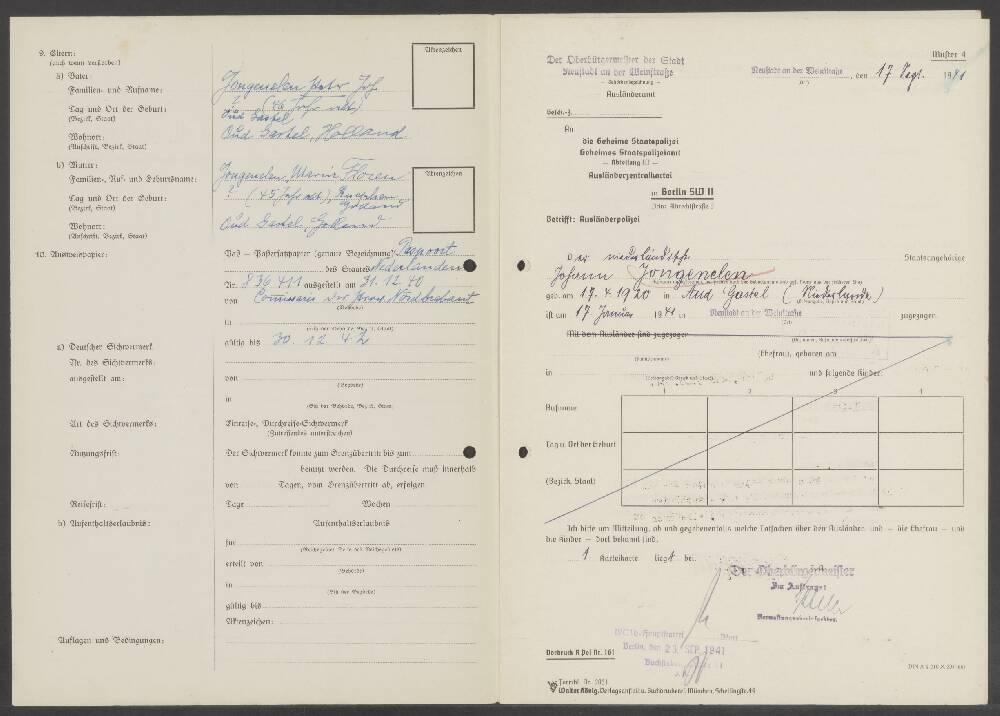 9. Eltern:
(auch wenn verstorben)
a) Vater:
Familien- und Rufname: Jongenelen Petr Joh.
Tag und Ort der Geburt: ? (46 Jahr alt)
(Bezirk, Staat) Oud Gastel
Wohnort: Oud Gastel, Holland
(Anschrift, Bezirk, Staat)
Aktenzeichen
b) Mutter:
Familien-, Ruf- und Geburtsname: Jongenelen, Maria Floren
Tag und Ort der Geburt: ? (45 Jahr alt),
(Bezirk, Staat)
Wohnort: Oud Gastel, Holland
(Anschrift, Bezirk, Staat)
Aktenzeichen
10. Ausweispapier: Das – Paßersatzpapier (genaue Bezeichnung) Paspoort
des Staates Nederlanden
Nr. 836411 ausgestellt am 31. 12. 40
von Commissaris der Prov. Nordbrabant
(Behörde)
in
(Sitz der Behörde, Bezirk, Staat)
gültig bis 30. 12. 42
a) Deutscher Sichtvermerk
Nr. des Sichtvermerks:
ausgestellt am:
von
(Behörde)
in
(Sitz der Behörde, Bezirk, Staat)
Art des Sichtvermerks: Einreise-, Durchreise-Sichtvermerk
(Zutreffendes unterstreichen)
Nutzungsfrist: Der Sichtvermerk konnte zum Grenzübertritt bis zum
benutzt werden. Die Durchreise muß innerhalb
von Tagen, vom Grenzübertritt ab, erfolgen
Reisefrist: Tage Wochen
b) Aufenthaltserlaubnis: Aufenthaltserlaubnis
für
(Reichsgebiet, Teile des Reichsgebiets)
erteilt von
(Behörde)
in
(Sitz der Behörde)
gültig bis
Aktenzeichen:
Auflagen und Bedingungen:
Muster 4
Der Oberbürgermeister der Stadt
Neustadt an der Weinstraße
– Behördenbezeichnung –
Ausländeramt
Neustadt an der Weinstraße, den 17. Sept. 1941
(Ort)
Gesch.-Z.
An
die Geheime Staatspolizei
Geheimes Staatspolizeiamt
– Abteilung III –
Ausländerzentralkartei
in Berlin SW 11
Prinz Albrechtstraße 8
Betrifft: Ausländerpolizei
Der niederländische Staatsangehörige
Johann Jongenelen
geb. am 17. 4. 1920 in Aud Gastel (Niederlande)
ist am 17. Januar 1941 in Neustadt an der Weinstraße zugezogen.
(Ort)
Mit dem Ausländer sind zugezogen
(Ehefrau), geboren am
in und folgende Kinder:
1 2 3 4
Rufname
Tag u. Ort der Geburt
(Bezirk, Staat)
Ich bitte um Mitteilung, ob und gegebenenfalls welche Tatsachen über den Ausländer und – die Ehefrau – und
die Kinder – dort bekannt sind.
1 Karteikarte liegt bei.
Der Oberbürgermeister
Im Auftrage:
Berlin, den 23. SEP. 1941
Vordruck A Pol Nr. 161
Walter König, Verlagsanstalt u. Buchdruckerei, München, Schellingstr. 44